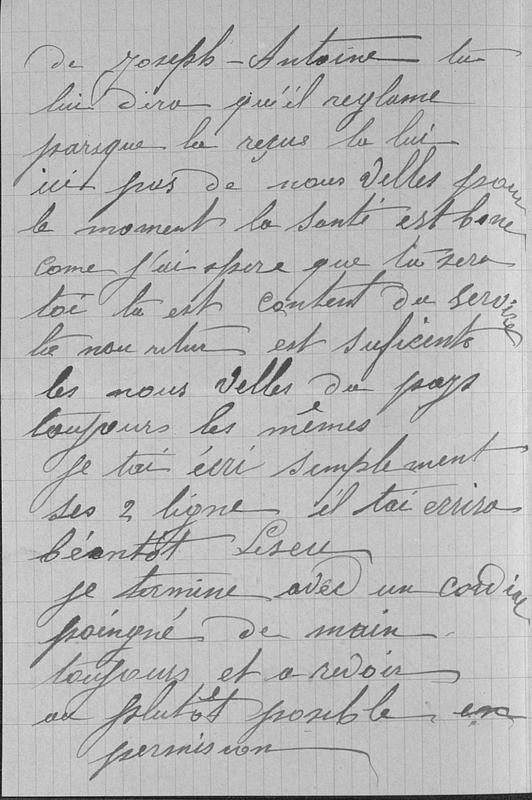 de Joseph-Antoine tu
lui dira qu'il reglame
parsque la reçue la lui
ici pas de nous velles pour
le moment la santé est bone
come j'ai spere que tu sera
toi tu est content du service
la nouritur est suficente
les nous velles du pays
toujours les mêmes
je tai écri simplement
ses 2 ligne il tai crrira
béentôt
je termine aved un cordial
poingné de main
toujours et a revoir
au plutôt posible en
permission